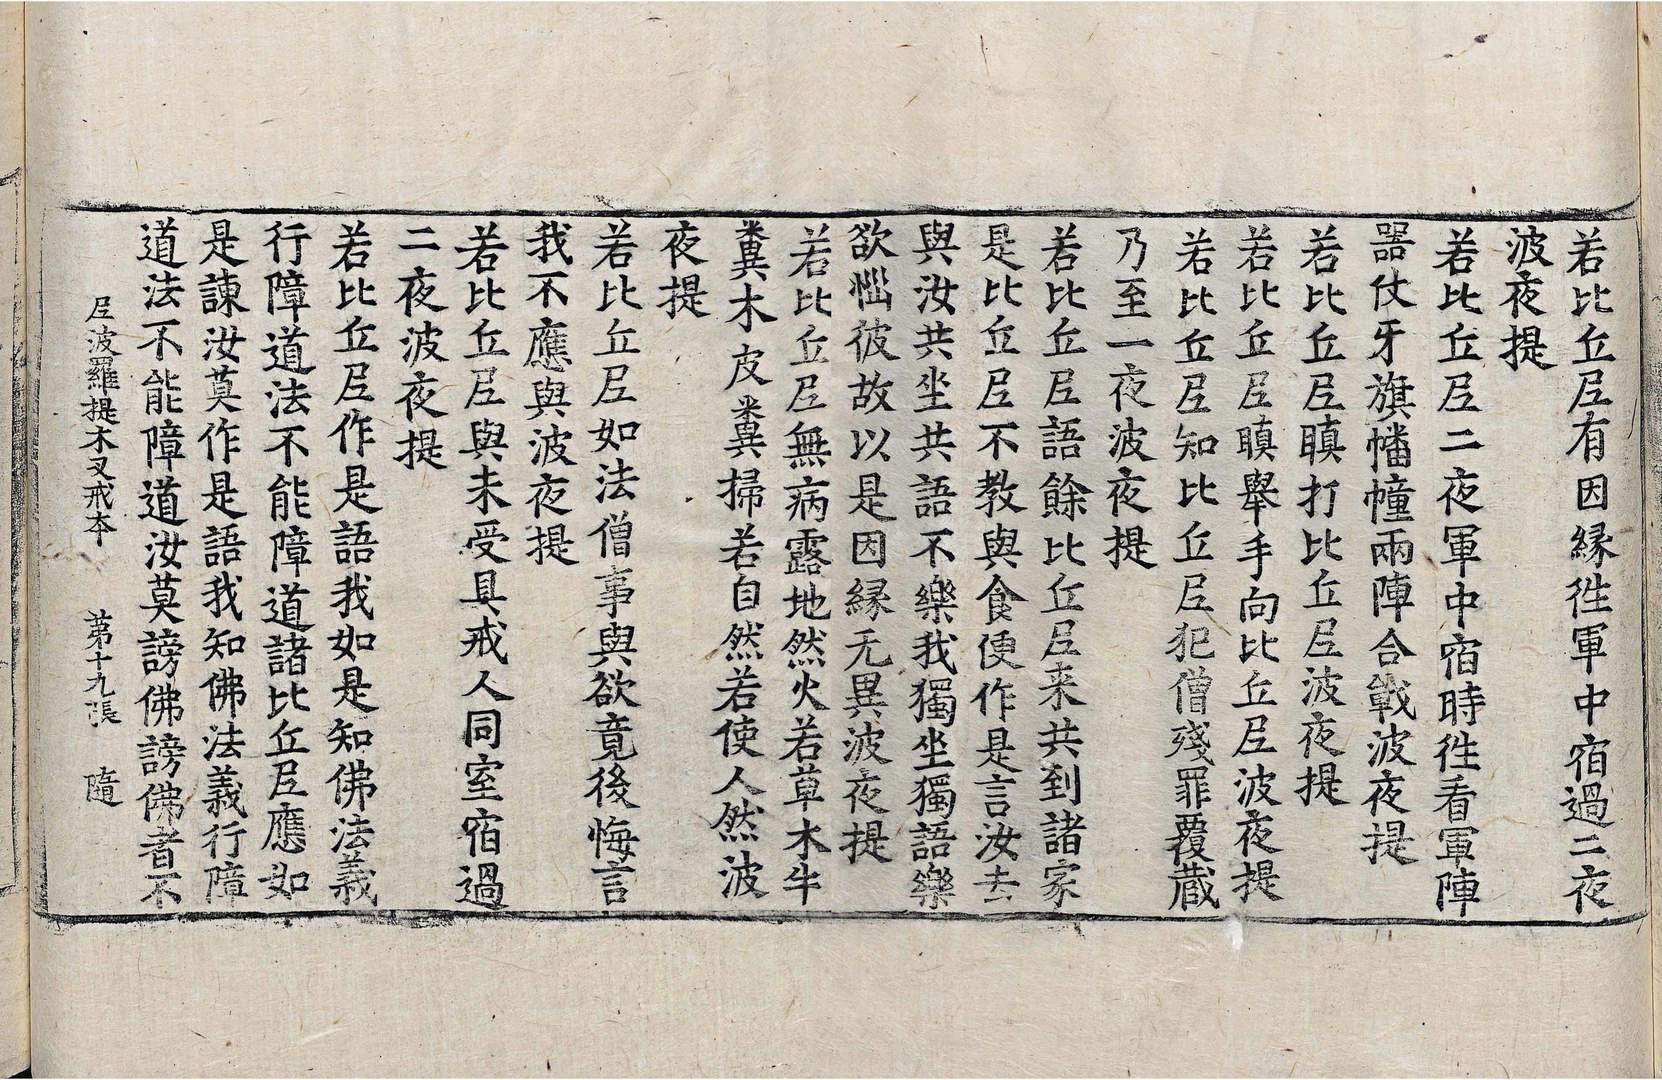 若比丘尼有因縁徃軍中宿過二夜
波夜提
若比丘尼二夜軍中宿時徃看軍陣
器仗牙旗幡幢兩陣合戰波夜提
若比丘尼瞋打比丘尼波夜提
若比丘尼瞋舉手向比丘尼波夜提
若比丘尼知比丘尼犯僧殘罪覆藏
乃至一夜波夜提
若比丘尼語餘比丘尼来共到諸家
是比丘尼不教與食便作是言汝去
與汝共坐共語不樂我獨坐獨語樂
欲惱彼故以是因縁无異波夜提
若比丘尼無病露地然火若草木牛
糞木皮糞掃若自然若使人然波
夜提
若比丘尼如法僧事與欲竟後悔言
我不應與波夜提
若比丘尼與未受具戒人同室宿過
二夜波夜提
若比丘尼作是語我如是知佛法義
行障道法不能障道諸比丘尼應如
是諫汝莫作是語我知佛法義行障
道法不能障道汝莫謗佛謗佛者不
尼波羅提木叉戒本 第十九張 隨